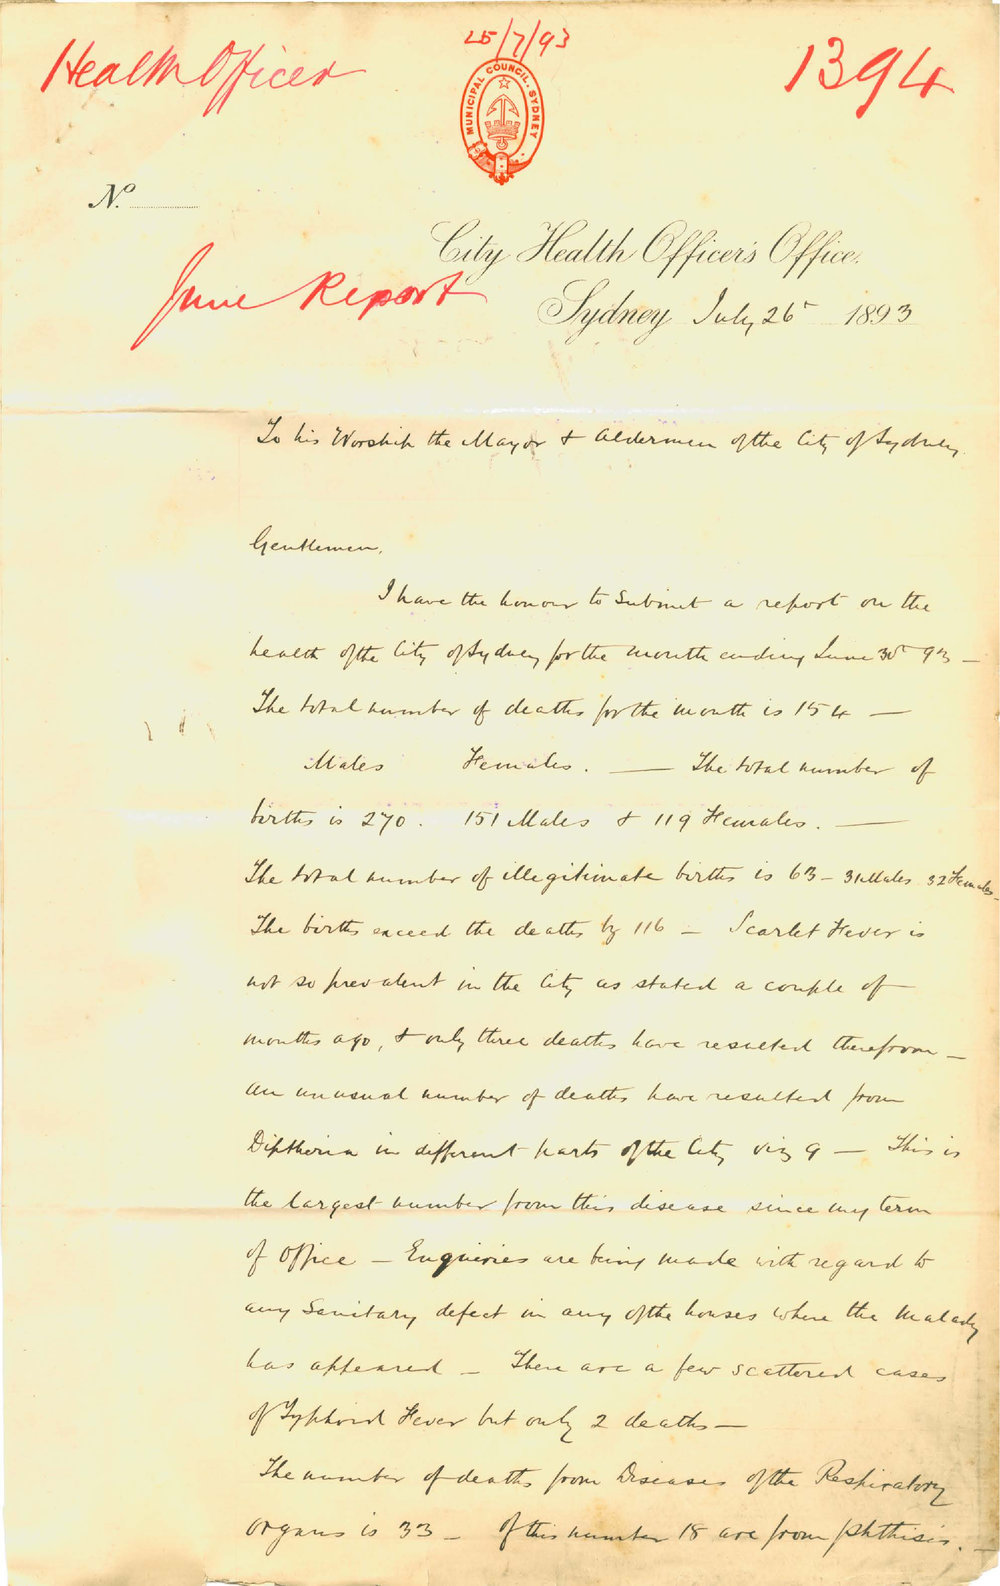 25/7/93
Health Officer
1394
MUNICIPAL COUNCIL. SYDNEY
No.
City Health Officer's Office.
June Report
Sydney July 26th 1893
To his Worship the Mayor & Aldermen of the City of Sydney.
Gentlemen,
I have the honour to submit a report on the
health of the City of Sydney for the month ending June 30th 93 —
The total number of deaths for the month is 154 —
Males Females. — The total number of
births is 270. 151 Males & 119 Females. —
The total number of illegitimate births is 63 – 31 Males 32 Females –
The births exceed the deaths by 116 – Scarlet Fever is
not so prevalent in the City as stated a couple of
months ago, & only three deaths have resulted therefrom –
an unusual number of deaths have resulted from
Diptheria in different parts of the City viz 9 – This is
the largest number from this disease since my term
of Office – Enquiries are being made with regard to
any Sanitary defect in any of the houses where the Malady
has appeared – There are a few scattered cases
of Typhoid Fever but only 2 deaths –
The number of deaths from Diseases of the Respiratory
organs is 33 – of this number 18 are from phthisis. –